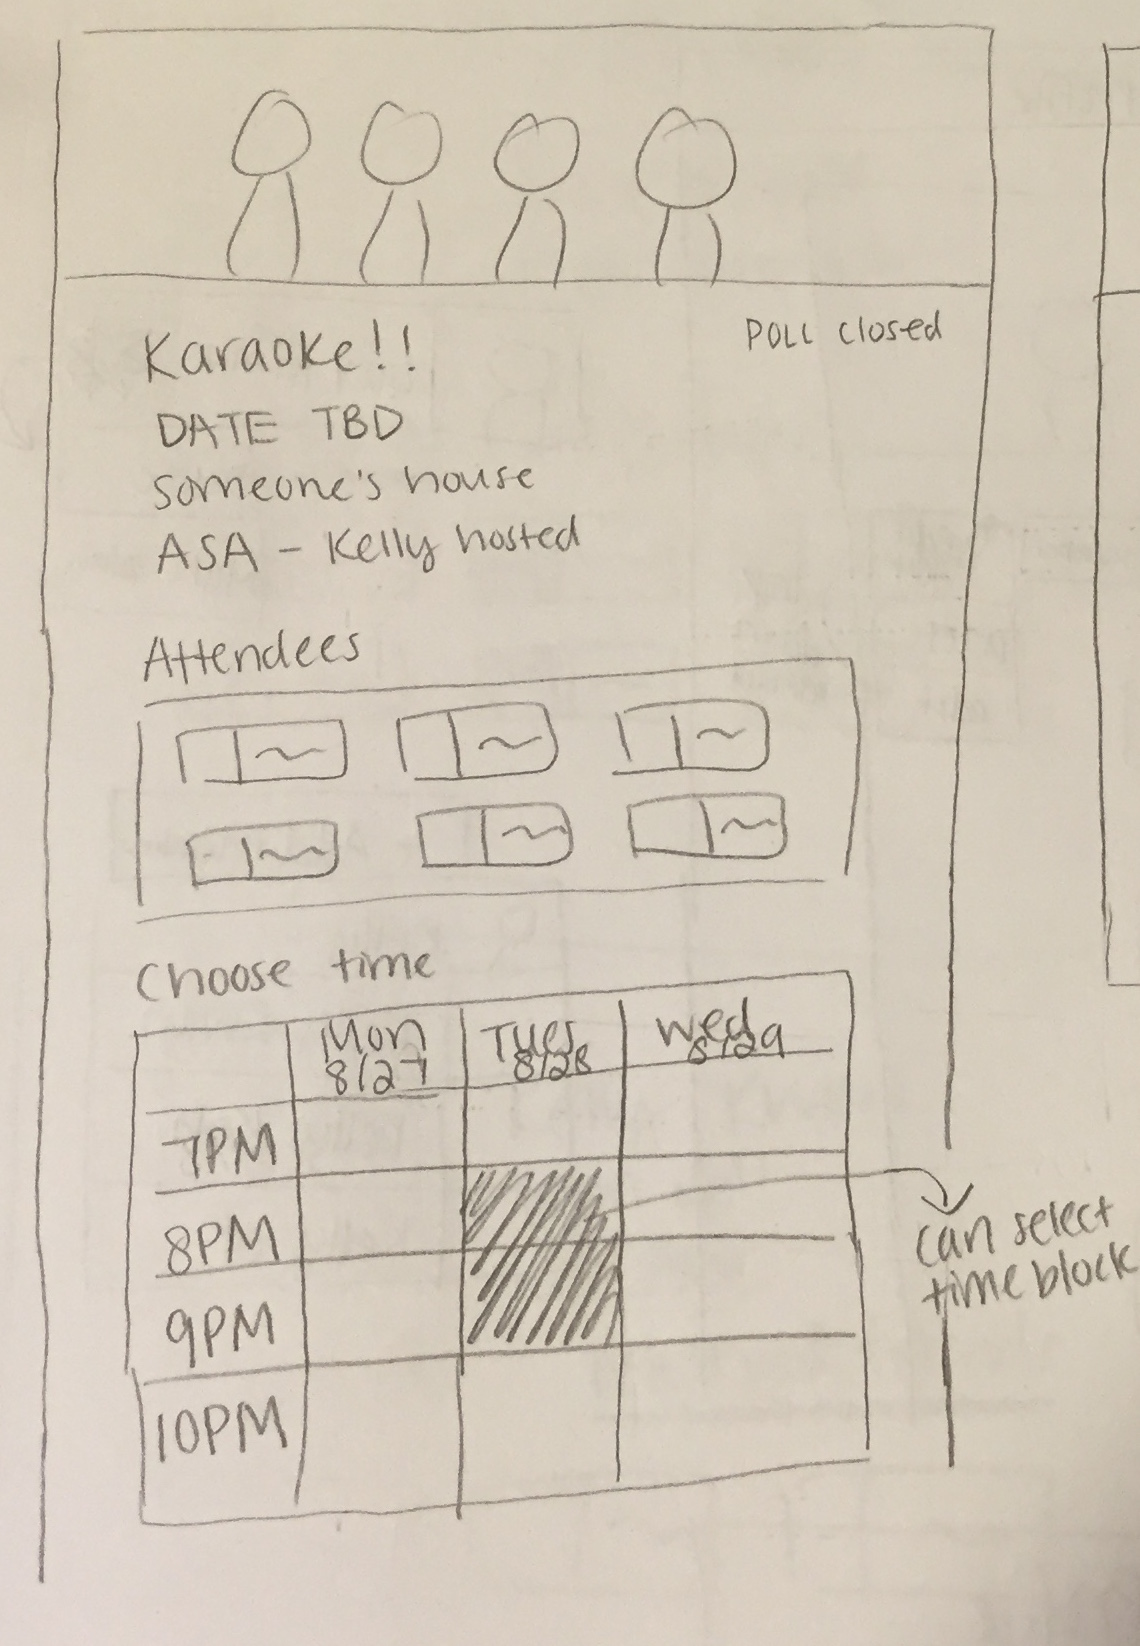 Karaoke!!
POLL closed
DATE TBD
someone's house
ASA - Kelly hosted
Attendees
Choose time
Mon Tues Wed
8/27 8/28 8/29
7PM
8PM
9PM
10PM
can select
time block